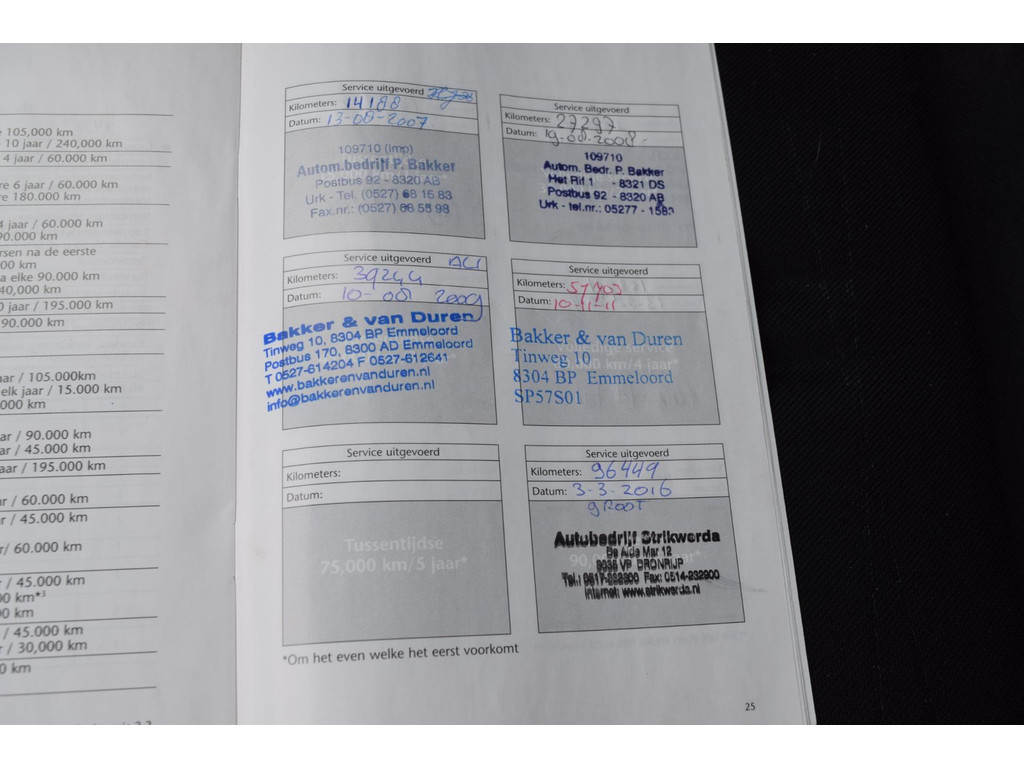 105,000 km
10 jaar / 240,000 km
4 jaar / 60.000 km
6 jaar / 60.000 km
180.000 km
4 jaar / 60.000 km
90.000 km
na de eerste
km
elke 90.000 km
40,000 km
jaar / 195.000 km
90.000 km
/ 105.000km
elk jaar / 15.000 km
000 km
/ 90.000 km
/ 45.000 km
/ 195.000 km
/ 60.000 km
/ 45.000 km
/ 60.000 km
/ 45.000 km
km*³
km
/ 45.000 km
/ 30,000 km
km
Service uitgevoerd
Kilometers: 14188
Datum: 13-08-2007
109710 (imp)
Autom.bedrijf P. Bakker
Postbus 92 - 8320 AB
Urk - Tel. (0527) 68 16 83
Fax.nr.: (0527) 68 55 98
Service uitgevoerd
Kilometers: 27297
Datum: 19-08-2008-
109710
Autom. Bedr. P. Bakker
Het Rif 1 - 8321 DS
Postbus 92 - 8320 AB
Urk - tel.nr.: 05277 - 1583
Service uitgevoerd
Kilometers: 39244
Datum: 10-08 2009
Bakker & van Duren
Tinweg 10, 8304 BP Emmeloord
Postbus 170, 8300 AD Emmeloord
T 0527-614204 F 0527-612641
www.bakkerenvanduren.nl
info@bakkerenvanduren.nl
Service uitgevoerd
Kilometers:
Datum: 10-11-11
Bakker & van Duren
Tinweg 10
8304 BP Emmeloord
SP57S01
service
km/4 jaar*
Service uitgevoerd
Kilometers:
Datum:
Tussentijdse
75,000 km/5 jaar*
Service uitgevoerd
Kilometers: 96449
Datum: 3-3-2016
GROOT
Autobedrijf Strikwerda
De Alde Mar 12
9035 VP DRONRIJP
Fax: 0514-232900
Internet: www.strikwerda.nl
*Om het even welke het eerst voorkomt
25